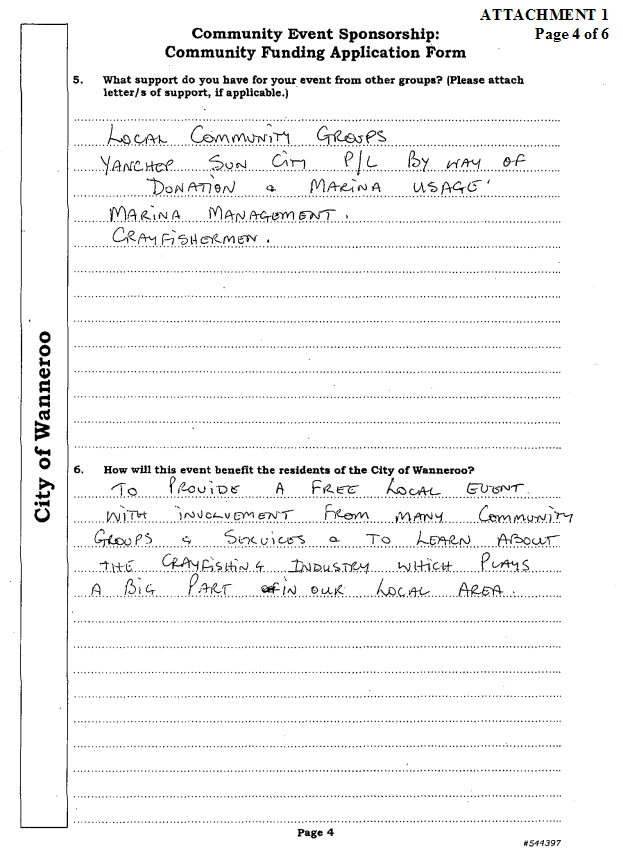 ATTACHMENT 1
Page 4 of 6
Community Event Sponsorship:
Community Funding Application Form
5. What support do you have for your event from other groups? (Please attach
letter/s of support, if applicable.)
LOCAL COMMUNITY GROUPS
YANCHEP SUN CITY P/L BY WAY OF
DONATION & MARINA USAGE
MARINA MANAGEMENT.
CRAYFISHERMEN.
City of Wanneroo
6. How will this event benefit the residents of the City of Wanneroo?
TO PROVIDE A FREE LOCAL EVENT
WITH INVOLVEMENT FROM MANY COMMUNITY
GROUPS & SERVICES & TO LEARN ABOUT
THE CRAYFISHING INDUSTRY WHICH PLAYS
A BIG PART IN OUR LOCAL AREA.
Page 4
#544397